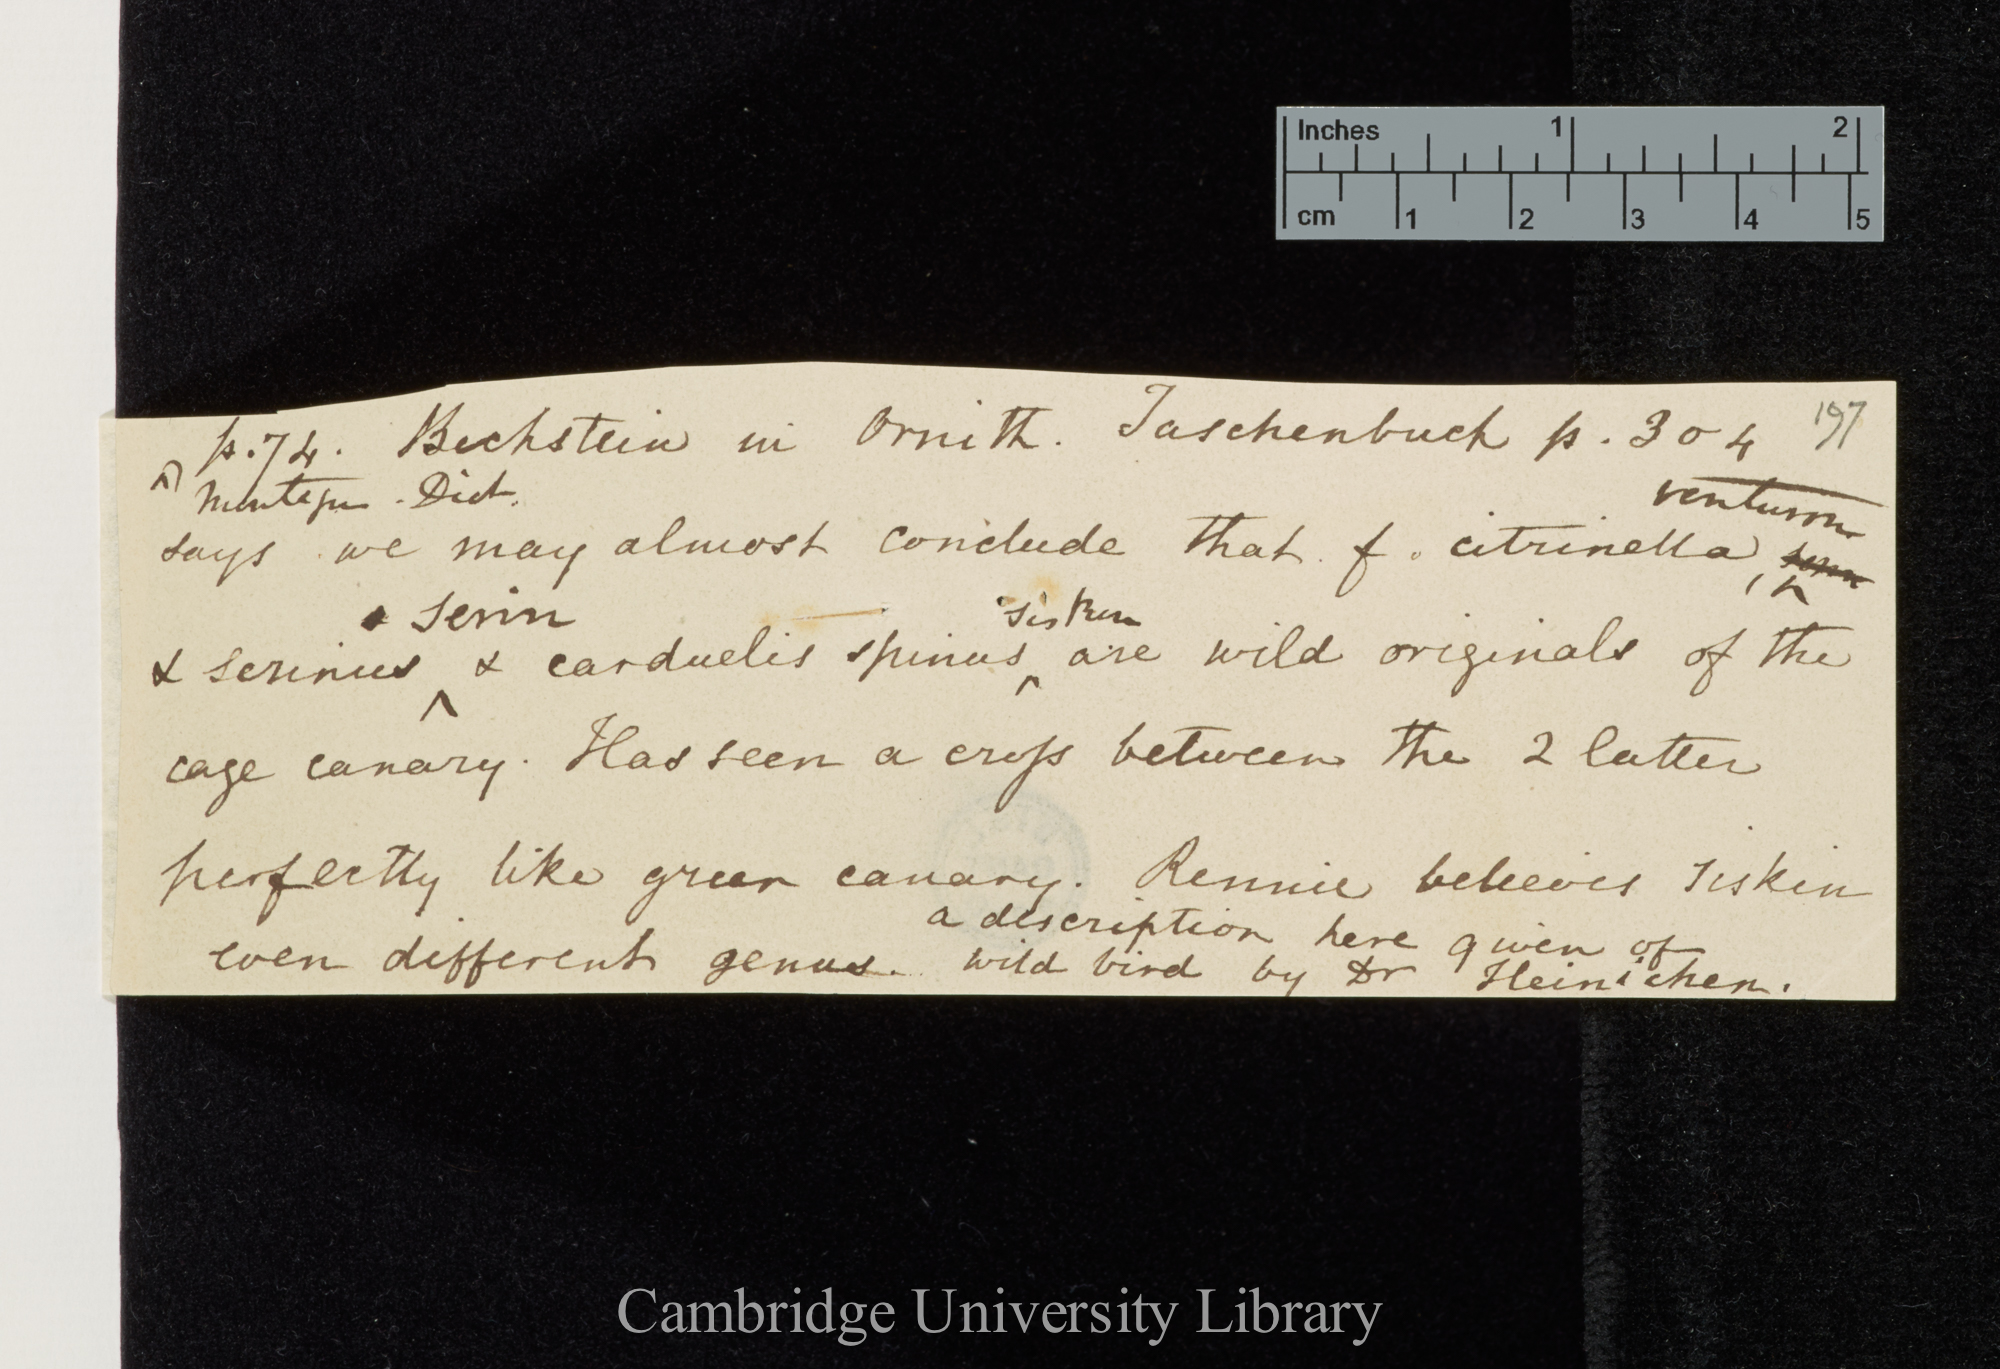 Inches 1 2
cm 1 2 3 4 5
197
p. 74. Bechstein in Ornith. Taschenbuch p. 304
Montagu. Dict.
venturon
says we may almost conclude that f. citrinella,
serin siskin
& serinus & carduelis spinus are wild originals of the
cage canary. Has seen a cross between the 2 latter
perfectly like green canary. Rennie believes siskin
a description here given of
even different genus. wild bird by Dr Heinichen.
Cambridge University Library